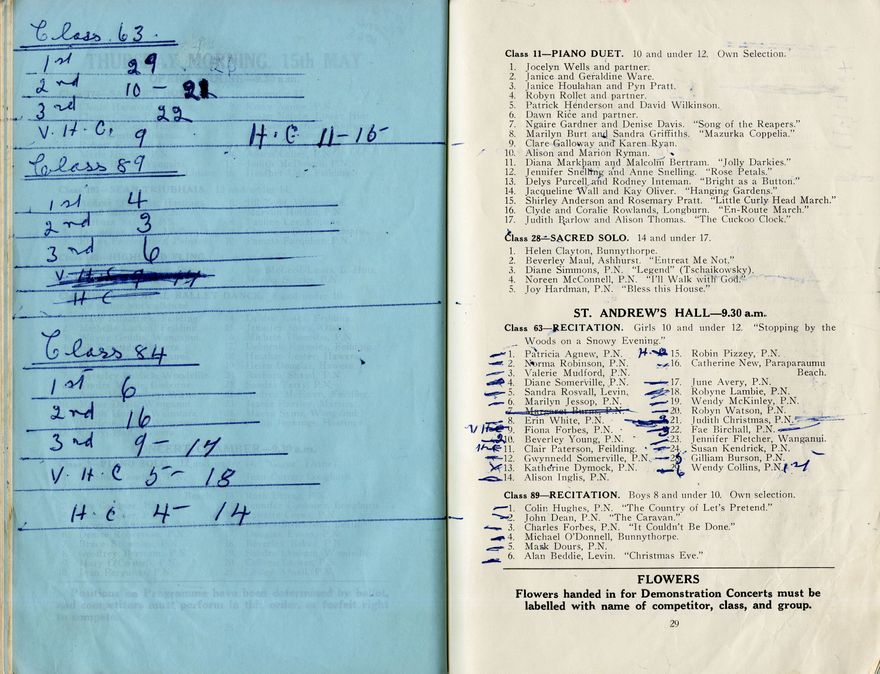 Class 63
1st 29
2nd 10 - 21
3rd 22
V.H.C. 9 H.C 11-15
Class 89
1st 4
2nd 3
3rd 6
V.H.C 9 14
H C
Class 84
1st 6
2nd 16
3rd 9 - 17
V.H.C 5 - 18
H.C 4 - 14
THURSDAY MORNING, 15th MAY
Positions on Programme have been determined by ballot,
and competitors must perform in this order, or forfeit right
to compete.
Class 11—PIANO DUET. 10 and under 12. Own Selection.
1. Jocelyn Wells and partner.
2. Janice and Geraldine Ware.
3. Janice Houlahan and Pyn Pratt.
4. Robyn Rollet and partner.
5. Patrick Henderson and David Wilkinson.
6. Dawn Rice and partner.
7. Ngaire Gardner and Denise Davis. "Song of the Reapers."
8. Marilyn Burt and Sandra Griffiths. "Mazurka Coppelia."
9. Clare Galloway and Karen Ryan.
10. Alison and Marion Ryman.
11. Diana Markham and Malcolm Bertram. "Jolly Darkies."
12. Jennifer Snelling and Anne Snelling. "Rose Petals."
13. Delys Purcell and Rodney Inteman. "Bright as a Button."
14. Jacqueline Wall and Kay Oliver. "Hanging Gardens."
15. Shirley Anderson and Rosemary Pratt. "Little Curly Head March."
16. Clyde and Coralie Rowlands, Longburn. "En-Route March."
17. Judith Barlow and Alison Thomas. "The Cuckoo Clock."
Class 28—SACRED SOLO. 14 and under 17.
1. Helen Clayton, Bunnythorpe.
2. Beverley Maul, Ashhurst. "Entreat Me Not."
3. Diane Simmons, P.N. "Legend" (Tschaikowsky).
4. Noreen McConnell, P.N. "I'll Walk with God."
5. Joy Hardman, P.N. "Bless this House."
ST. ANDREW'S HALL—9.30 a.m.
Class 63—RECITATION. Girls 10 and under 12. "Stopping by the
Woods on a Snowy Evening."
1. Patricia Agnew, P.N. H-C
2. Norma Robinson, P.N.
3. Valerie Mudford, P.N.
4. Diane Somerville, P.N.
5. Sandra Rosvall, Levin.
6. Marilyn Jessop, P.N.
7. Margaret Burns, P.N.
8. Erin White, P.N.
9. Fiona Forbes, P.N.
10. Beverley Young, P.N.
11. Clair Paterson, Feilding.
12. Gwynnedd Somerville, P.N.
13. Katherine Dymock, P.N.
14. Alison Inglis, P.N.
15. Robin Pizzey, P.N.
16. Catherine New, Paraparaumu
Beach.
17. June Avery, P.N.
18. Robyne Lambie, P.N.
19. Wendy McKinley, P.N.
20. Robyn Watson, P.N.
21. Judith Christmas, P.N.
22. Fae Birchall, P.N.
23. Jennifer Fletcher, Wanganui.
24. Susan Kendrick, P.N.
Gilliam Burson, P.N.
Wendy Collins, P.N. 1st
Class 89—RECITATION. Boys 8 and under 10. Own selection.
1. Colin Hughes, P.N. "The Country of Let's Pretend."
2. John Dean, P.N. "The Caravan."
3. Charles Forbes, P.N. "It Couldn't Be Done."
4. Michael O'Donnell, Bunnythorpe.
5. Mark Dours, P.N.
6. Alan Beddie, Levin. "Christmas Eve."
FLOWERS
Flowers handed in for Demonstration Concerts must be
labelled with name of competitor, class, and group.
29